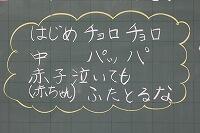 はじめ チョロ チョロ
中 パッパ
赤子泣いても
(赤ちゃん) ふたとるな